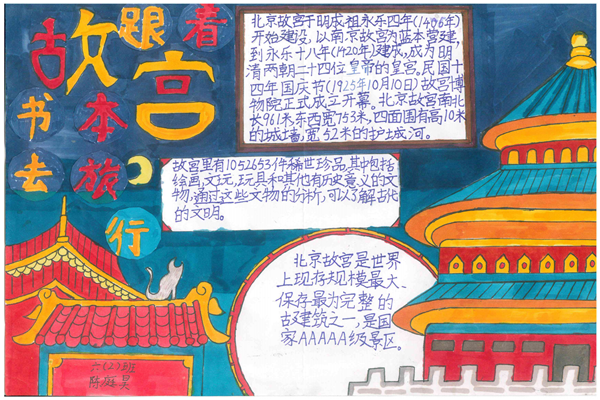 故宫
跟着
书本
去旅
行
北京故宫于明成祖永乐四年(1406年)
开始建设,以南京故宫为蓝本营建,
到永乐十八年(1420年)建成,成为明
清两朝二十四位皇帝的皇宫。民国十
四年国庆节(1925年10月10日)故宫博
物院正式成立开幕。北京故宫南北
长961米东西宽753米,四面围有高10米
的城墙,宽52米的护城河。
故宫里有1052653件稀世珍品,其中包括
绘画,文玩,玩具和其他有历史意义的文
物,通过这些文物的分析,可以了解古代
的文明。
北京故宫是世界
上现存规模最大、
保存最为完整的
古建筑之一,是国
家AAAAA级景区。
六(2)班